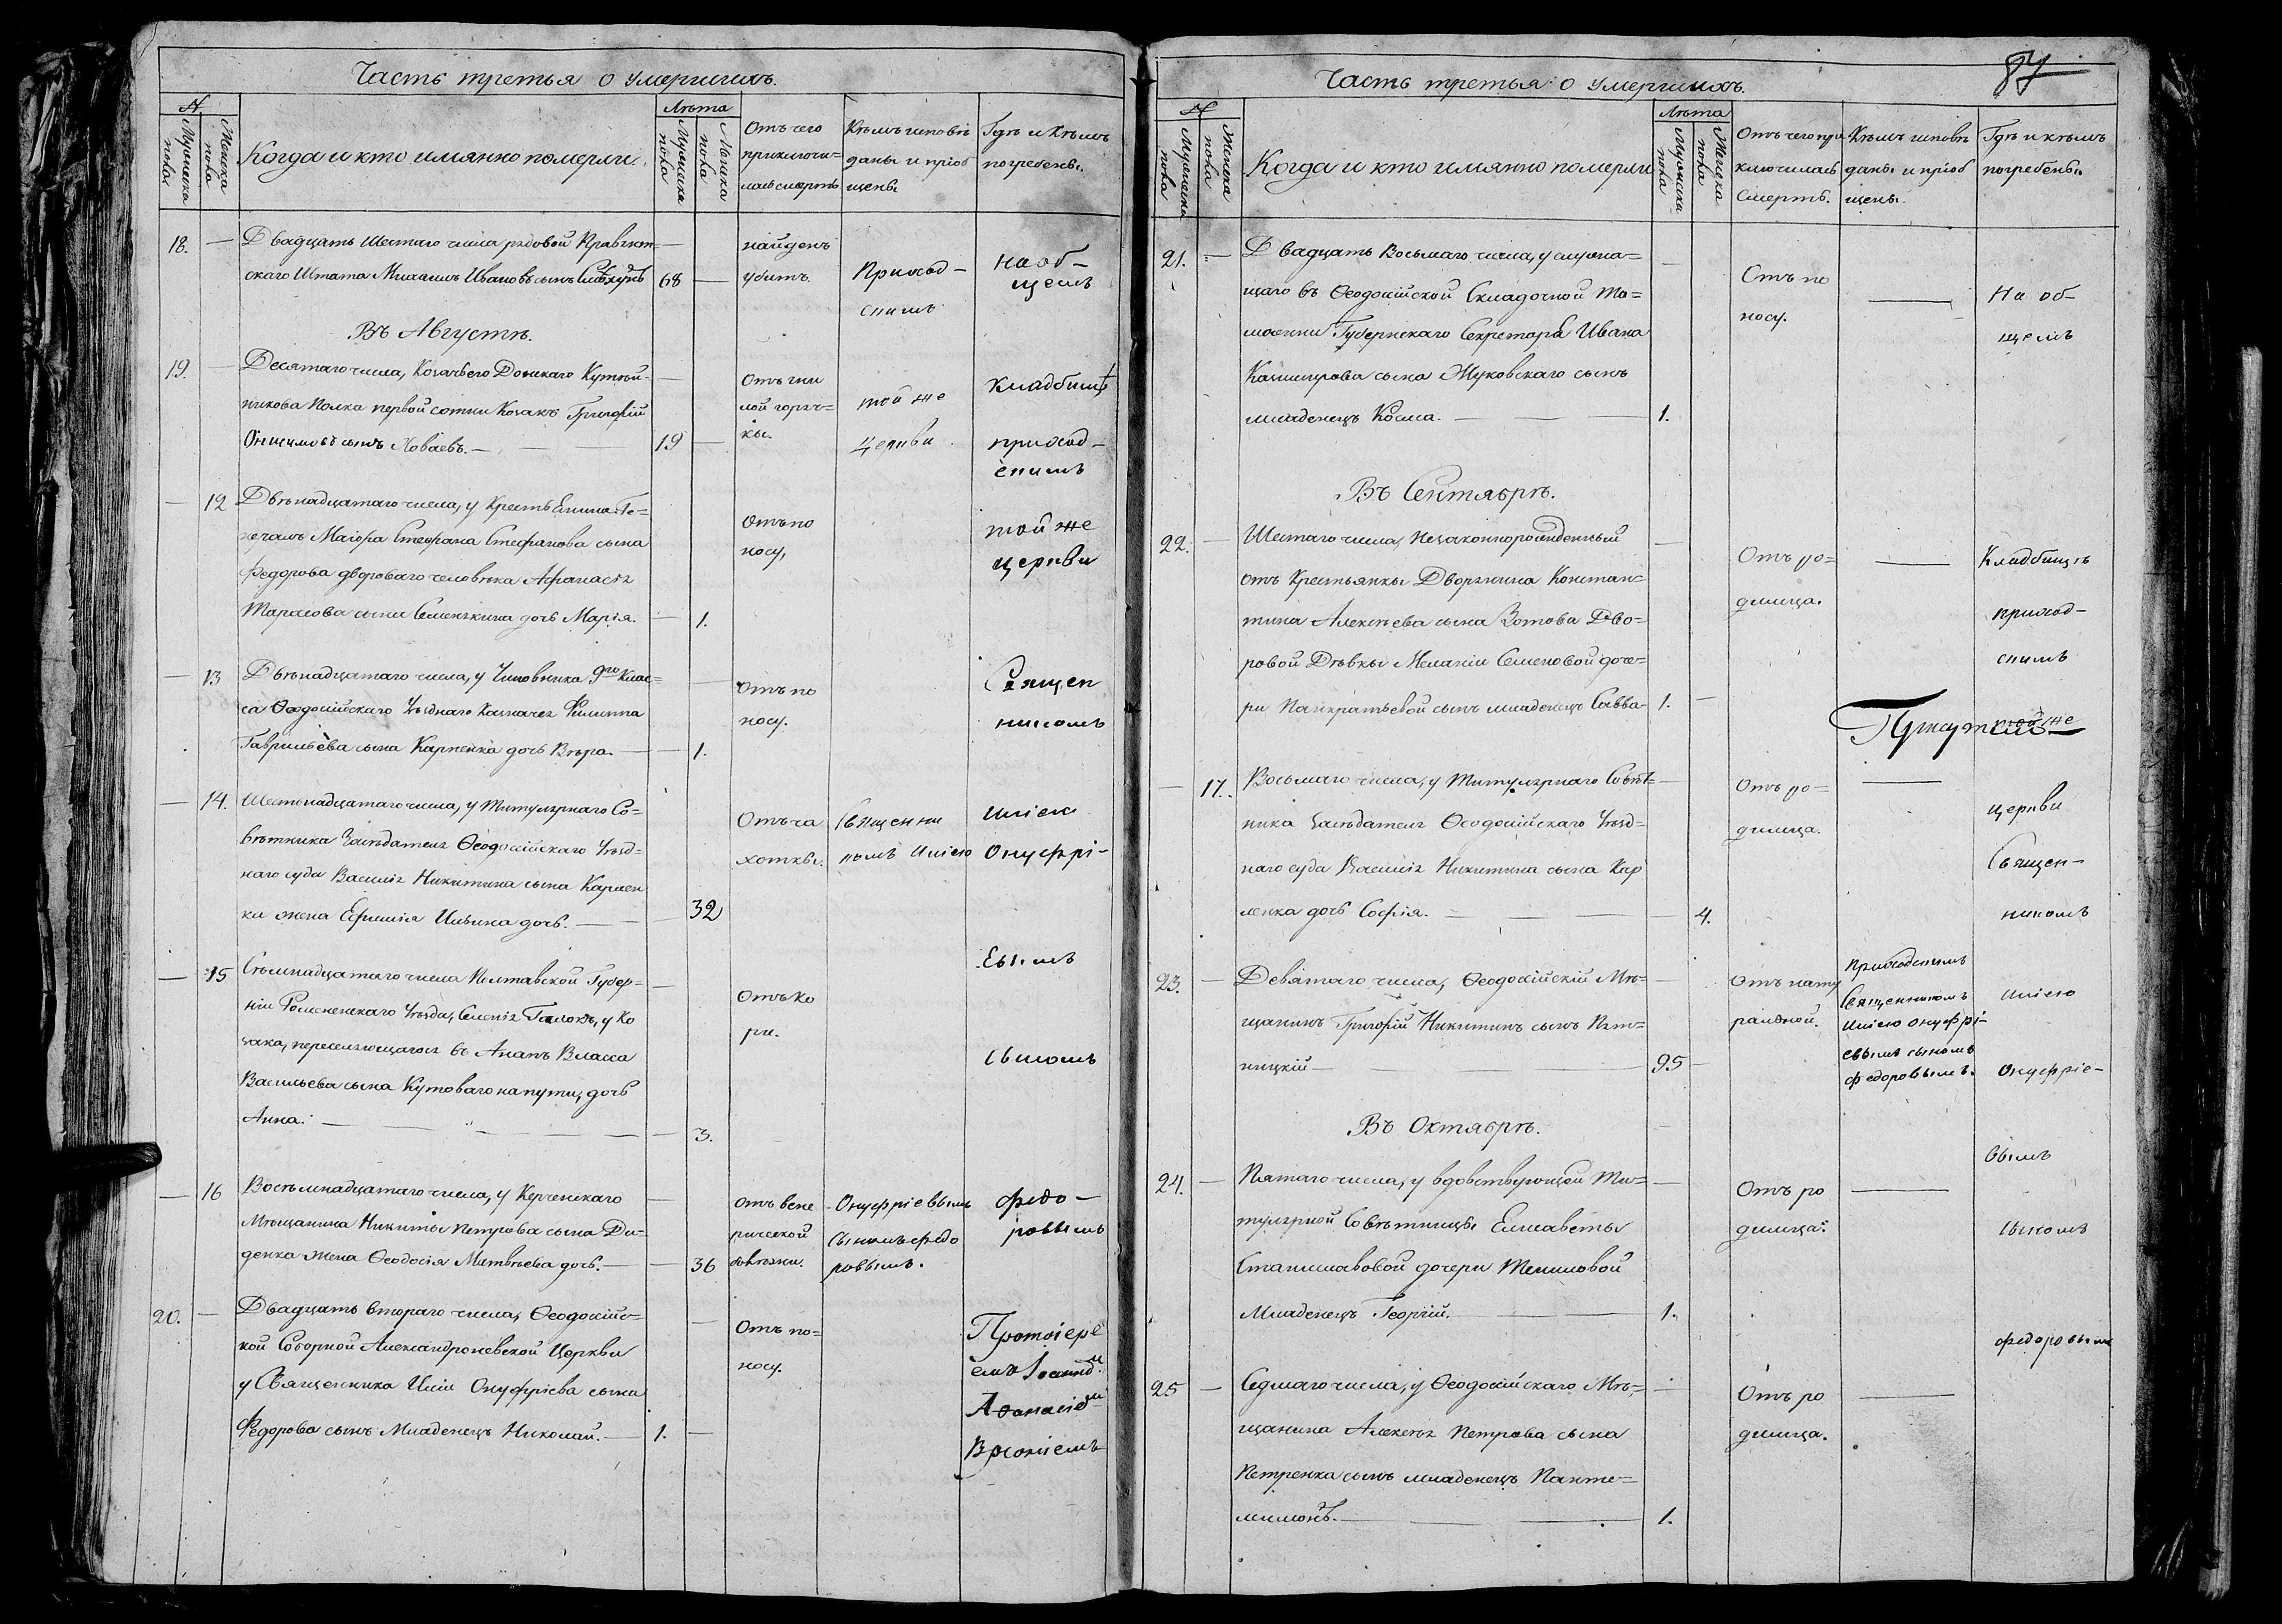 Часть третья о умершихъ.
№
Мужеска пола
Женска пола
Когда и кто имянно померли.
Лѣта
Мужеска пола
Женска пола
Отъ чего
приключи=
лась смерть
Кѣмъ исповѣ
даны и пріоб
щены
Гдѣ и кѣмъ
погребены.
18. — Двадцать шестаго числа рядовой
скаго Штата Михаилъ Ивановъ сынъ 68 —
найденъ
убитъ.
Приход-
скимъ
на об-
щемъ
Въ Августѣ.
19. — Десятаго числа, Козачьего Донскаго Кутей-
никова Полка первой сотни Козакъ Григорій
Онисимовъ сынъ Ловаевъ. — 19 —
Отъ гни
лой горяч=
ки.
той же
Церкви
кладбищѣ
приход-
скимъ
— 12 Двѣнадцатаго числа, у Ге=
нералъ Маіора Стефана Стефанова сына
Федорова двороваго человѣка Афанасія
Тарасова сына дочь Марія. — 1.
Отъ по
носу,
той же
церкви
— 13 Двѣнадцатаго числа, у Чиновника 9го Клас=
са Ѳеодосійскаго Уѣзднаго Казначея Филиппа
Гаврильева сына Карпенка дочь Вѣра. — 1.
Отъ по
носу.
Священ
никомъ
— 14. Шестонадцатаго числа, у Титулярнаго Со=
вѣтника Засѣдателя Ѳеодосійскаго Уѣзд=
наго суда Василія Никитина сына Карлен
ка жена Ефимія Ильина дочь. — 32
Отъ ча
хотки.
Священни
комъ Иліею
Иліею
Онуфрі-
— 15 Седмнадцатаго числа Полтавской Губер=
ніи Роменскаго Уѣзда, Галокъ, у Ко
зака, переселяющагося въ Анапъ Власа
Васильева сына Кутоваго на пути, дочь
Анна. — 3.
Отъ ко
ри.
евымъ
сыномъ
— 16 Восемнадцатаго числа, у Керченскаго
Мѣщанина Никиты Петрова сына Ди=
денка жена Ѳеодосія Матвѣева дочь. — 36
Отъ вене
рической
болѣзни.
Онуфріевымъ
сыномъ Федо
ровымъ.
Федо-
ровымъ
20. — Двадцать втораго числа, Ѳеодосійс=
кой Соборной Александроневской Церкви
у Священника Иліи Онуфріева сына
Федорова сынъ младенецъ Николай. — 1. —
Отъ по=
носу.
Протоіере
емъ
Часть третья о умершихъ.
87
№
Мужеска пола
Женска пола
Когда и кто имянно померли
Лѣта
Мужеска пола
Женска пола
Отъ чего при
ключилась
смерть.
Кѣмъ исповѣ
даны и пріоб
щены.
Гдѣ и кѣмъ
погребены.
21. — Двадцать восьмаго числа, у служа=
щаго въ Ѳеодосійской Складочной Та=
можни Губернскаго Секретаря Ивана
Казимирова сына Жуковскаго сынъ
младенецъ Косма. — 1.
Отъ по
носу.
На об-
щемъ
Въ Сентябрѣ.
22. — Шестаго числа, незаконнорожденный
отъ Крестьянки Дворянина Констан=
тина Алексѣева сына Зотова Дво=
ровой Дѣвки Меланіи Семеновой доче=
ри Панкратьевой сынъ младенецъ Савва— 1. —
Отъ ро=
димца.
Кладбищѣ
приход-
скимъ
той же
— 17. Восьмаго числа, у Титулярнаго Совѣт=
ника Засѣдателя Ѳеодосійскаго Уѣзд=
наго суда Василія Никитина сына Кар
ленка дочь Софія. — 4.
Отъ ро=
димца.
церкви
Священ-
никомъ
23. — Девятаго числа, Ѳеодосійскій Мѣ=
щанинъ Григорій Никитинъ сынъ Пят=
ницкій — 95 —
Отъ нату
ральной.
приходскимъ
Священникомъ
Иліею Онуфрі-
евымъ сыномъ
Федоровымъ.
Иліею
Онуфріе-
Въ Октябрѣ.
24. — Пятаго числа, у вдовствующей Ти=
тулярной Совѣтницы Елисаветы
Станиславовой дочери
Младенецъ Георгій. — 1.
Отъ ро
димца.
вымъ
сыномъ
25 — Седмаго числа, у Ѳеодосійскаго Мѣ=
щанина Алексѣя Петрова сына
Петренка сынъ младенецъ Панте=
лимонъ. — 1.
Отъ ро
димца.
Федоровымъ